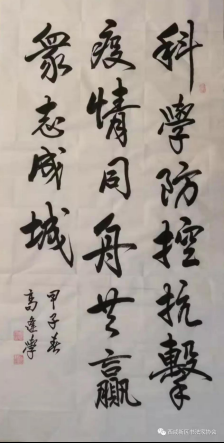 科學防控抗擊
疫情同舟共贏
眾志成城
甲子春